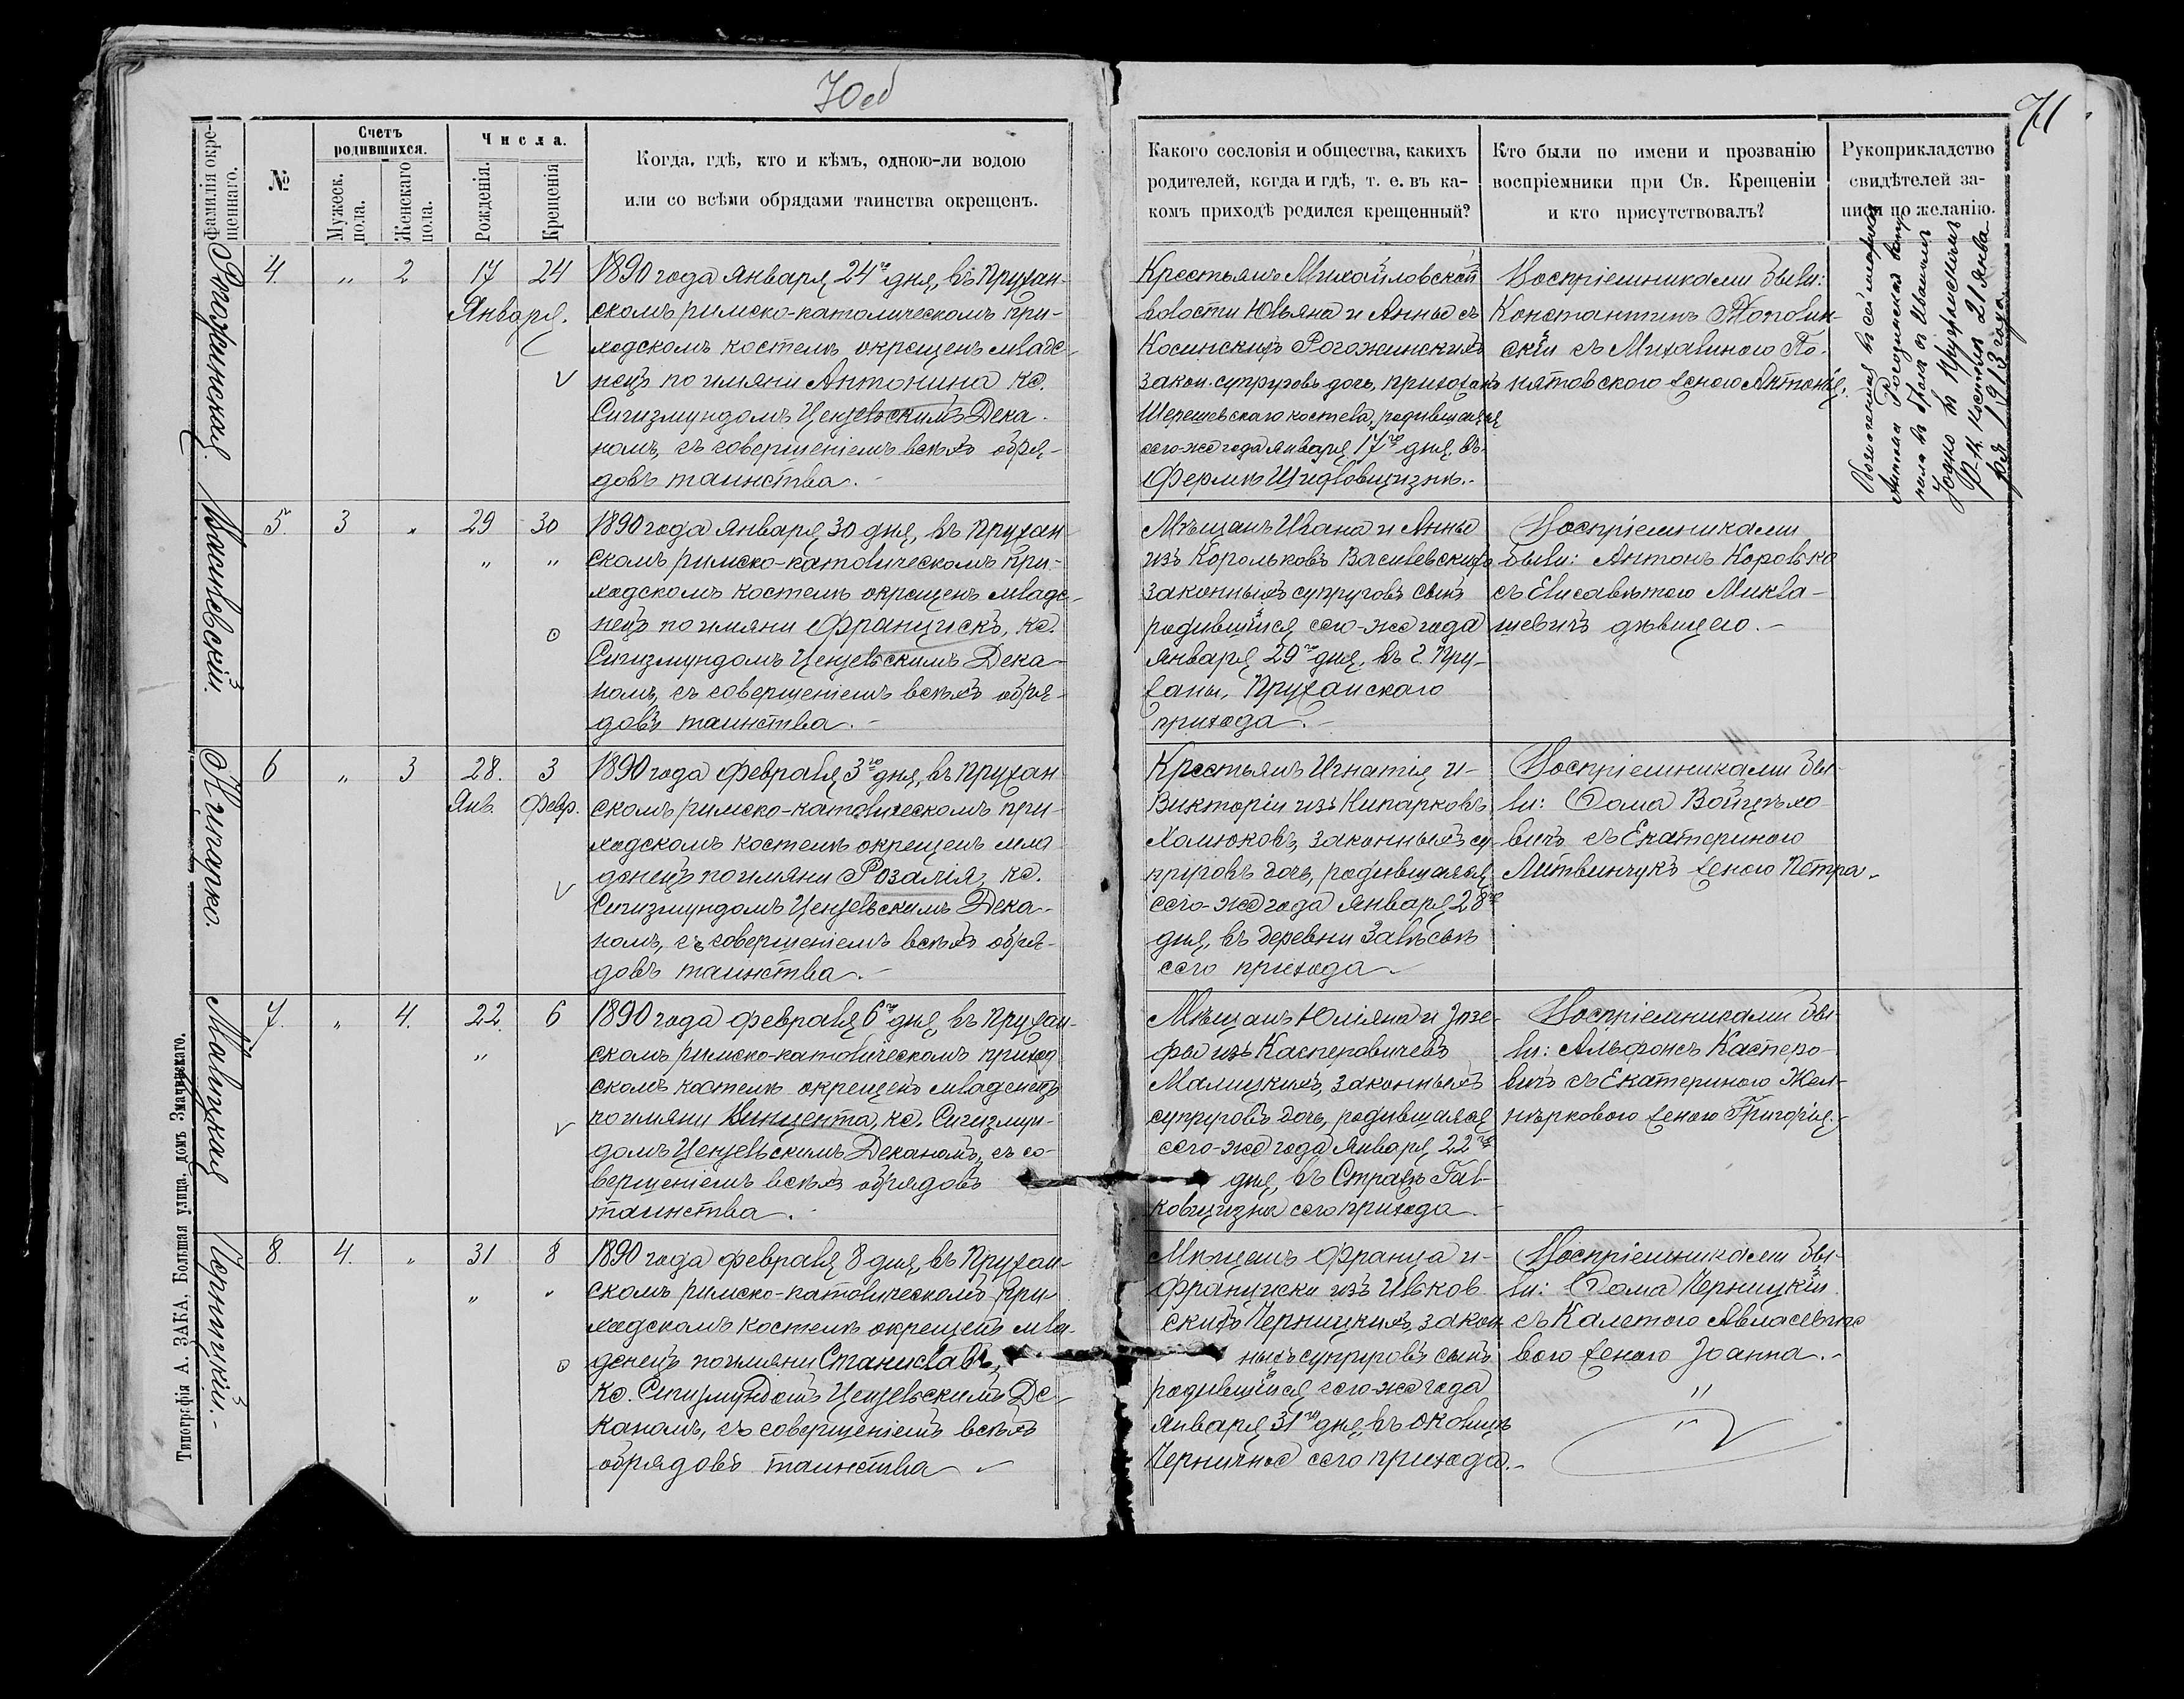 70 об
71
Фамилія окре-
щеннаго.
№
Счетъ
родившихся.
Мужеск.
пола.
Женскаго
пола.
Числа.
Рожденія.
Крещенія
Когда, гдѣ, кто и кѣмъ, одною-ли водою
или со всѣми обрядами таинства окрещенъ.
Какого сословія и общества, какихъ
родителей, когда и гдѣ, т. е. въ ка-
комъ приходѣ родился крещенный?
Кто были по имени и прозванію
воспріемники при Св. Крещеніи
и кто присутствовалъ?
Рукоприкладство
свидѣтелей за-
писи по желанію.
Рогожинская.
4. „ 2 17 24
Января.
1890 года января 24го дня, въ Пружан-
скомъ римско-католическомъ при-
ходскомъ костелѣ окрещенъ младе-
нецъ по имяни Антонина кс.
Сигизмундомъ Цензевскимъ Дека-
номъ, съ совершеніемъ всѣхъ обря-
довъ таинства.-
Крестьянъ Михайловской
волости Юльяна и Анны съ
Косинскихъ Рогожинскихъ
закон. супруговъ дочь, прихожанъ
Шерешевскаго костела, родившаяся
сего-же года января 17го дня, въ
Фермѣ Шидловщизнѣ.-
Воспріемниками были:
Константинъ Жоровин-
скій съ Михалиною По-
нятовского женою Антонія.
въ Пружанскомъ
Р-К. костелѣ 21 Янва-
ря 1913 года
Василевскій.
5. 3 „ 29 30
„ „
1890 года января 30 дня, въ Пружан-
скомъ римско-католическомъ при-
ходскомъ костелѣ окрещенъ младе-
нецъ по имяни Францискъ, кс.
Сигизмундомъ Цензевскимъ Дека-
номъ, съ совершеніемъ всѣхъ обря-
довъ таинства.-
Мѣщанъ Ивана и Анны
изъ Корольковъ Василевскихъ
законныхъ супруговъ сынъ
родившійся сего-же года
января 29го дня, въ г. Пру-
жаны, Пружанскаго
прихода.-
Воспріемниками
были: Антонъ Коровко
съ Елисаветою Микла-
шевичъ дѣвицею.-
Кипарко.
6 „ 3 28. 3
Янв. Февр.
1890 года февраля 3го дня, въ Пружан
скомъ римско-католическомъ при-
ходскомъ костелѣ окрещенъ мла
денецъ по имяни Розалія, кс.
Сигизмундомъ Цензевскимъ Дека-
номъ, съ совершеніемъ всѣхъ обря-
довъ таинства.-
Крестьянъ Игнатія и
Викторіи изъ Кипарковъ
Хомюковъ, законныхъ су-
пруговъ дочь, родившаяся
сего-же года января 28го
дня, въ деревни Залѣсье
сего прихода
Воспріемниками бы-
ли: Фома Войцѣхо-
вичъ съ Екатериною
Литвинчукъ женою Петра.
Малицкая
7. „ 4. 22 6
„
1890 года февраля 6го дня, въ Пружан-
скомъ римско-католическомъ приход
скомъ костелѣ окрещенъ младенецъ
по имяни Винцента, кс. Сигизмун-
домъ Цензевскимъ Деканомъ, съ со-
вершеніемъ всѣхъ обрядовъ
таинства.-
Мѣщанъ Юліяна и Іозе-
фы изъ Касперовичевъ
Малицкихъ, законныхъ
супруговъ дочь, родившаяся
сего-же года января 22го
дня, въ Стражѣ Гал-
ковщизна сего прихода.
Воспріемниками бы-
ли: Альфонсъ Касперо-
вичъ съ Екатериною Жел-
нѣрковою женою Григорія.
Черницкій.-
8. 4. „ 31 8
„ „
1890 года февраля 8 дня, въ Пружан-
скомъ римско-католическомъ при
ходскомъ костелѣ окрещенъ мла-
денецъ по имяни Станиславъ,
кс. Сигизмундомъ Цензевскимъ Де-
каномъ, съ совершеніемъ всѣхъ
обрядовъ таинства
Мѣщанъ Франца и
Франциски изъ Ивков
скихъ Черницкихъ, закон
ныхъ супруговъ сынъ
родившійся сего-же года
января 31го дня, въ околицѣ
Черничное сего прихода.-
Воспріемниками бы-
ли: Фома Черницкій
съ Калетою Авласевичо
вого женою Іоанна.-
„
Типографія А. ЗАКА, Большая улица, домъ Змачинскаго.